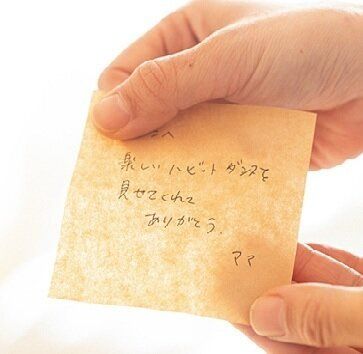 へ
楽しいハビットダンスを
見せてくれて
ありがとう.
ママ